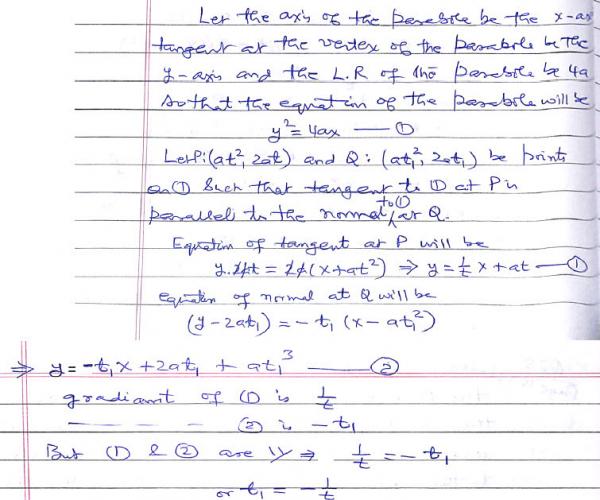 Let the axis of the parabola be the x-ax
tangent at the vertex of the parabola be the
y-axis and the L.R of the parabola be 4a
so that the equation of the parabola will be
y² = 4ax — ①
Let P: (at², 2at) and Q: (at₁², 2at₁) be points
on ① such that tangent to ① at P is
parallel to the normal to ① at Q.
Equation of tangent at P will be
y.2at = 2a(x+at²) ⇒ y = 1/t x + at — ①
equation of normal at Q will be
(y-2at₁) = -t₁ (x-at₁²)
⇒ y = -t₁x + 2at₁ + at₁³ — ②
gradiant of ① is 1/t
— — — ② is -t₁
But ① & ② are || ⇒ 1/t = -t₁
or t₁ = -1/t